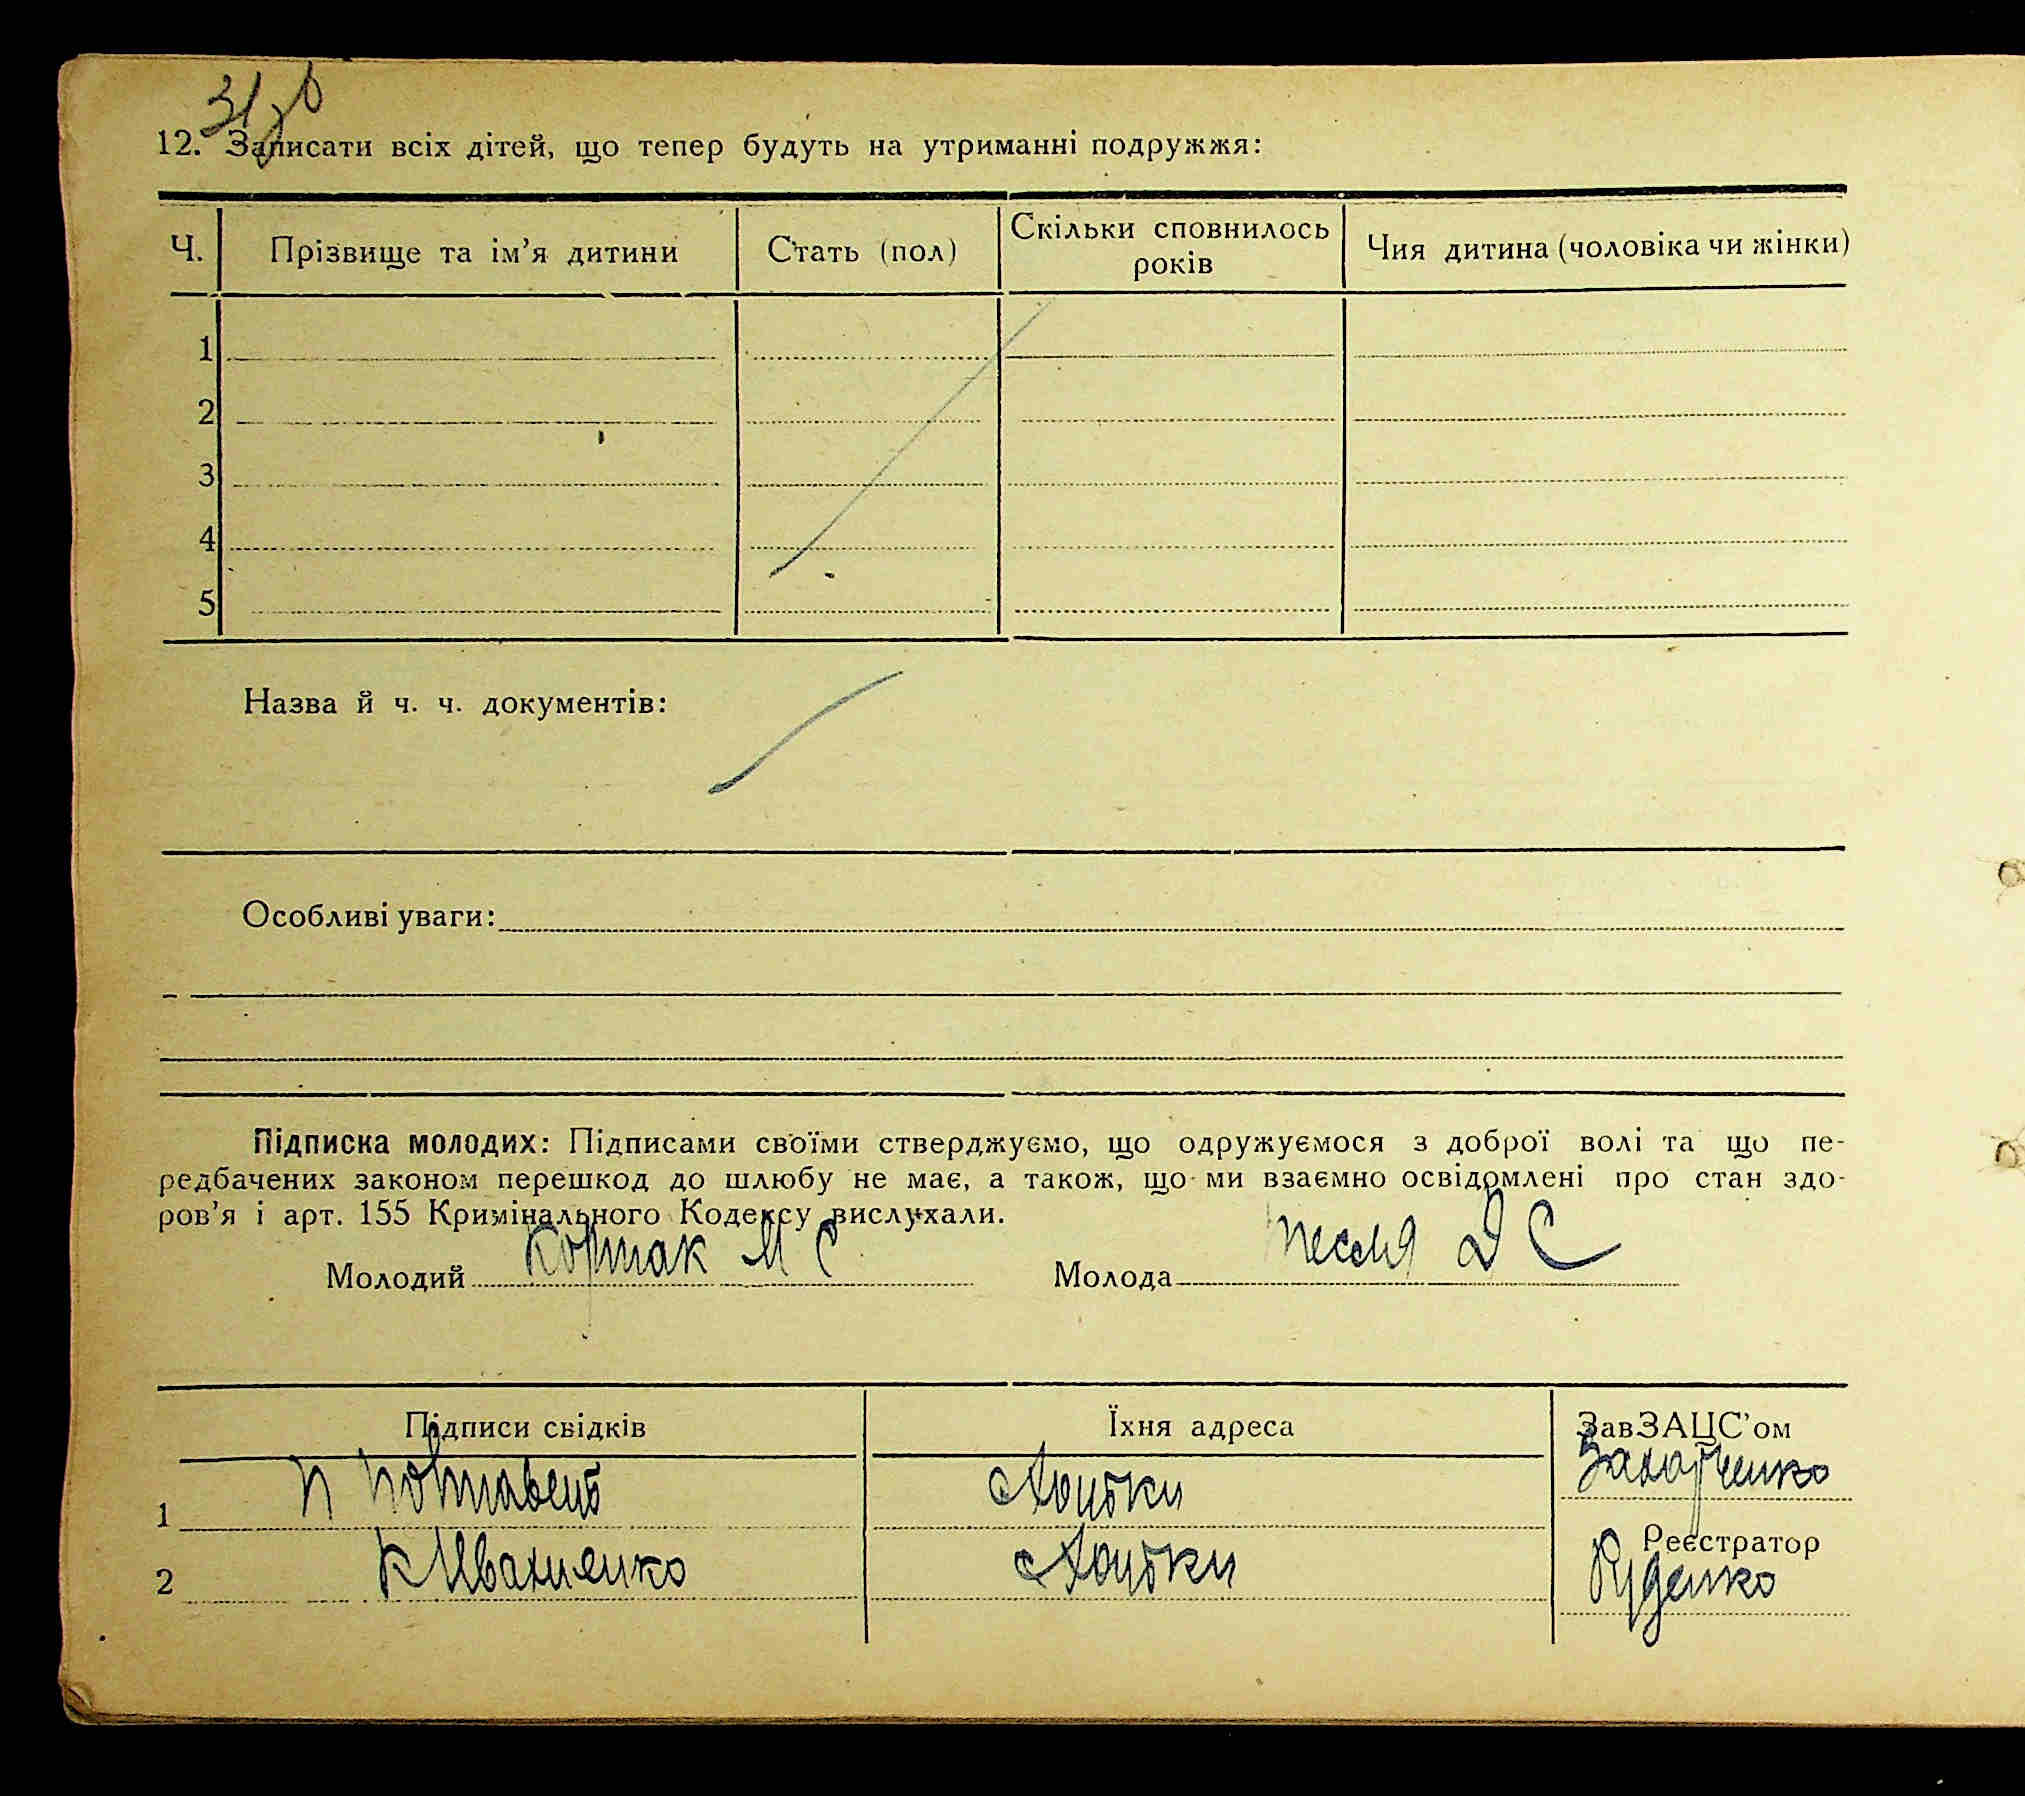 31зв
12. Записати всіх дітей, що тепер будуть на утриманні подружжя:
Ч. Прізвище та ім’я дитини Стать (пол) Скільки сповнилось років Чия дитина (чоловіка чи жінки)
1
2
3
4
5
Назва й ч. ч. документів:
Особливі уваги:
Підписка молодих: Підписами своїми стверджуємо, що одружуємося з доброї волі та що пе-
редбачених законом перешкод до шлюбу не має, а також, що ми взаємно освідомлені про стан здо-
ров’я і арт. 155 Кримінального Кодексу вислухали.
Молодий Коршак М С Молода Д С
Підписи свідків Їхня адреса ЗавЗАЦС’ом
Захарченко
1 П
Реєстратор
2 К Ивахненко Руденко